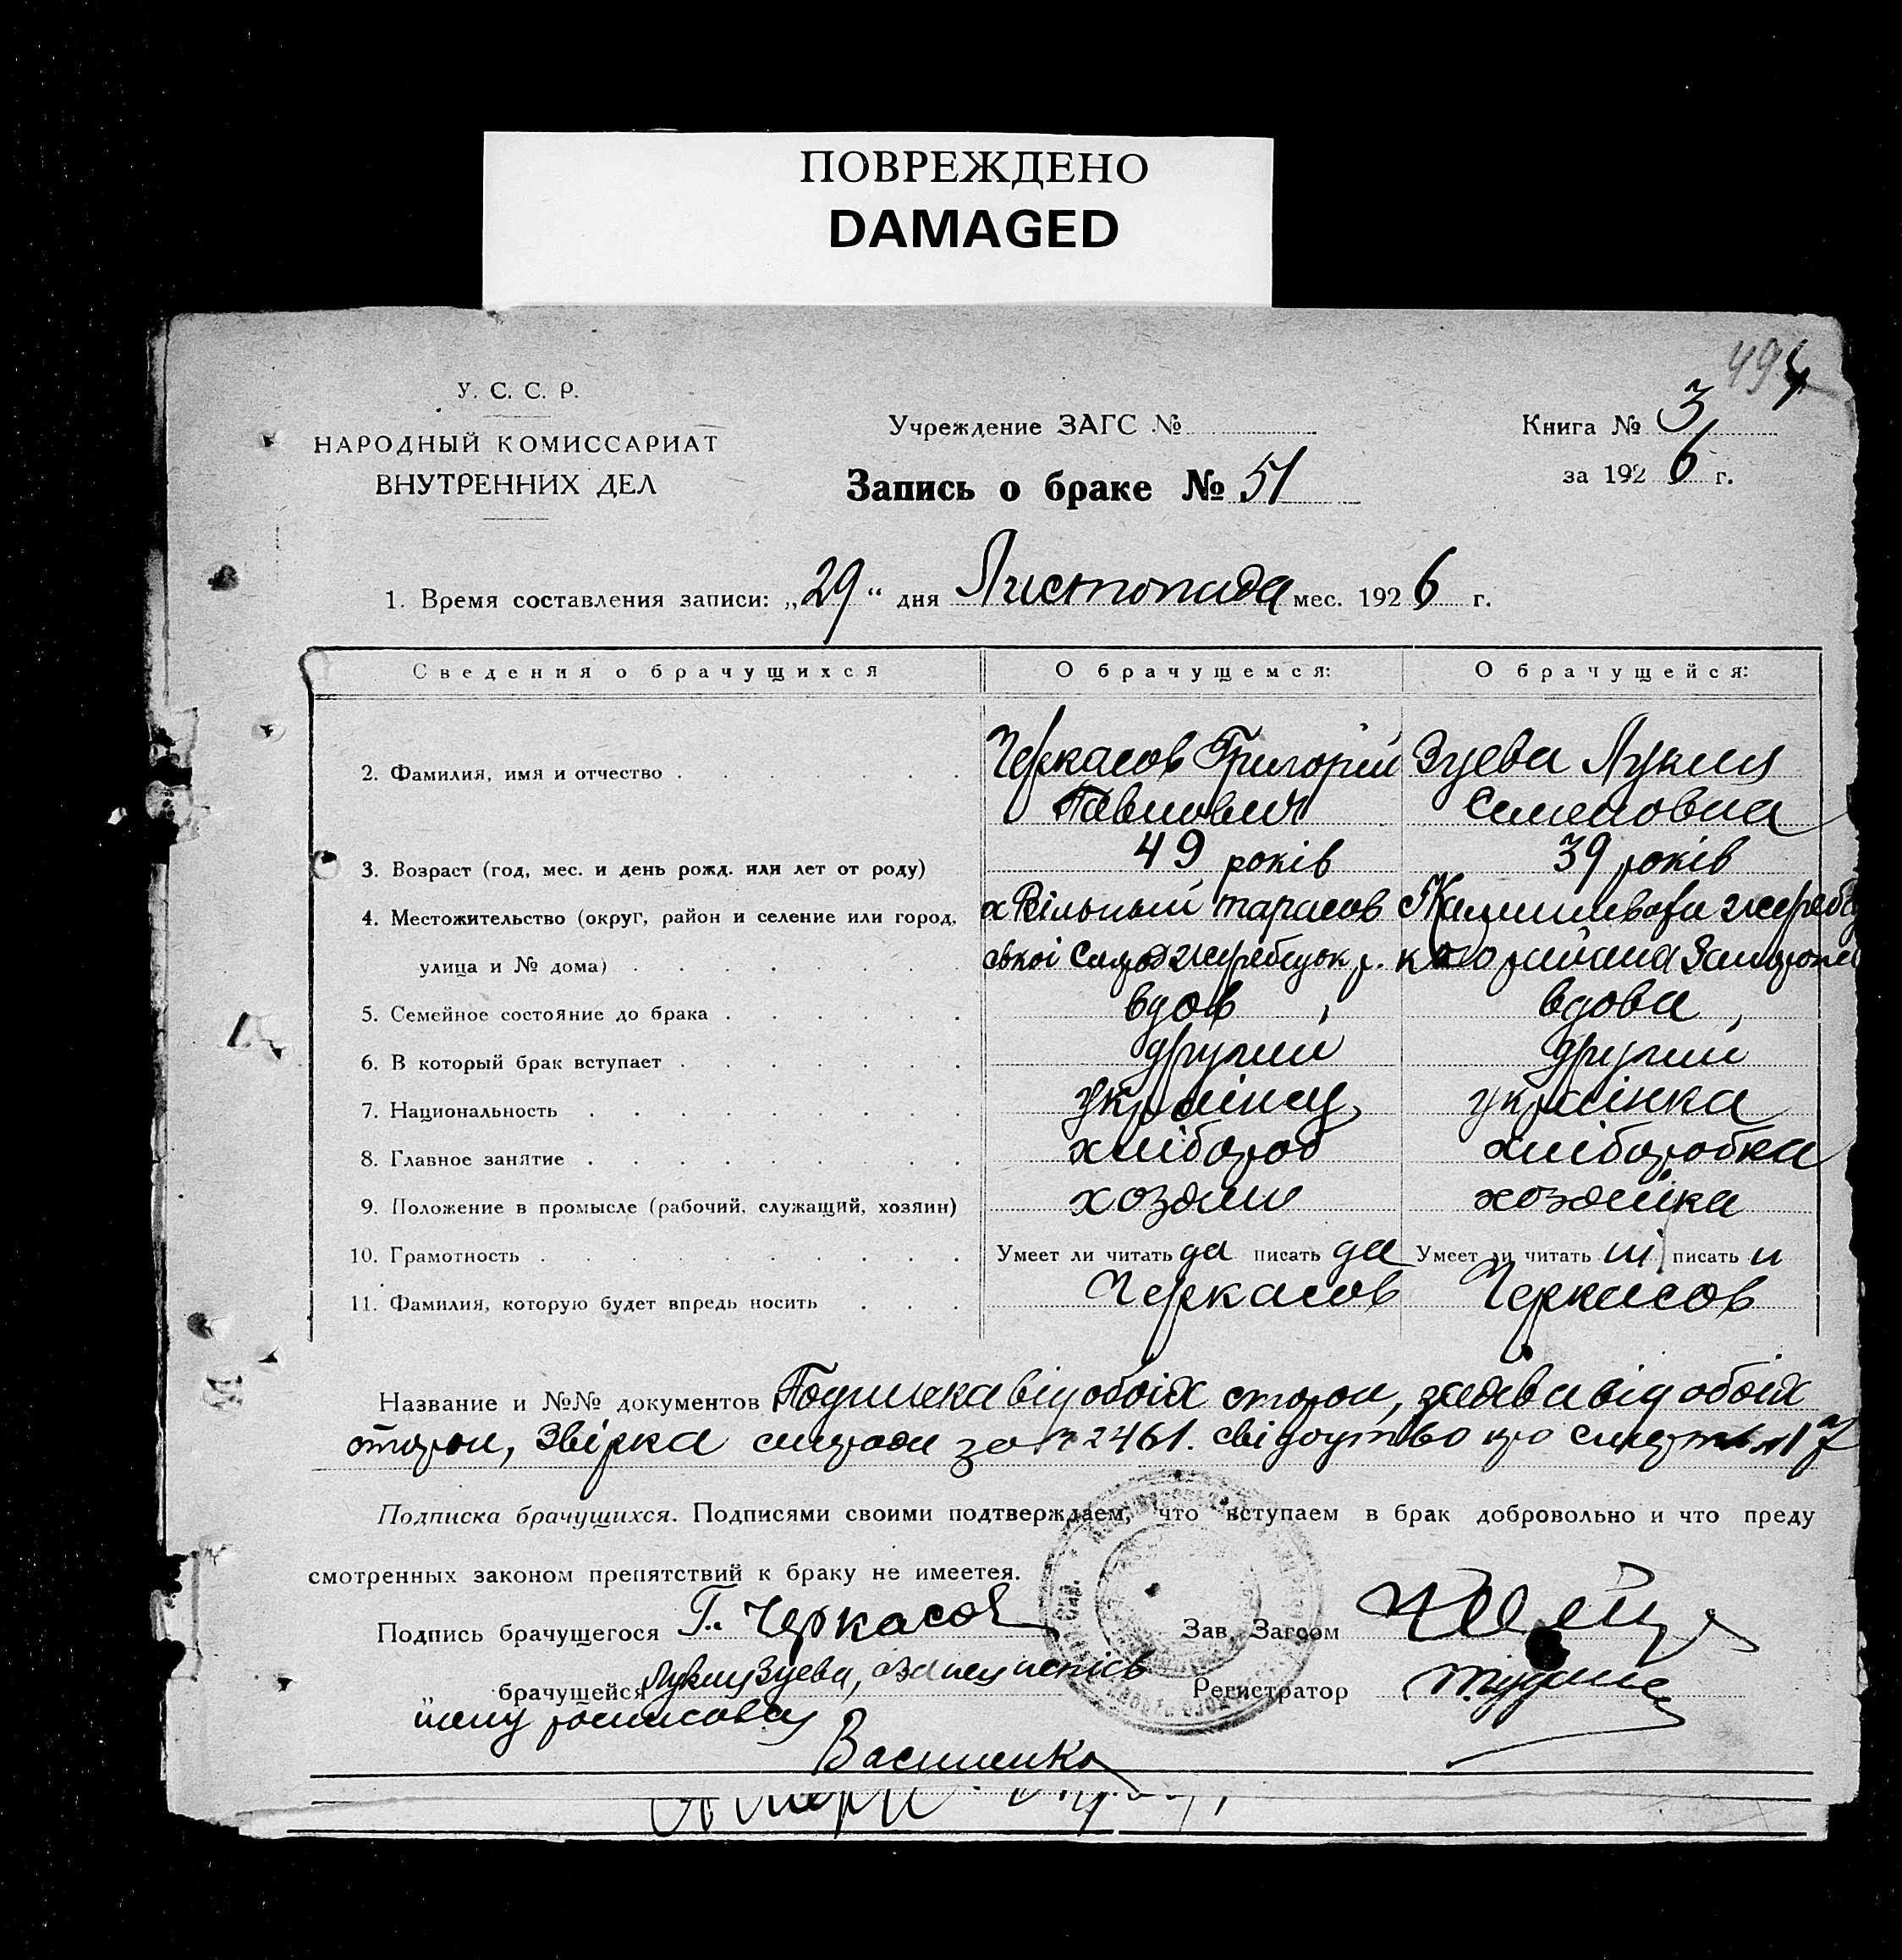 ПОВРЕЖДЕНО
DAMAGED
494
У. С. С. Р.
НАРОДНЫЙ КОМИССАРИАТ
ВНУТРЕННИХ ДЕЛ
Учреждение ЗАГС №
Запись о браке № 51
Книга № 3
за 1926 г.
1. Время составления записи: „29“ дня Листопада мес. 1926 г.
Сведения о брачущихся О брачущемся: О брачущейся:
2. Фамилия, имя и отчество Черкасов Григорий Зуева Лукия
Павлович Семеновна
3. Возраст (год, мес. и день рожд. или лет от роду) 49 років 39 років
4. Местожительство (округ, район и селение или город, х Вільный тарасов
улица и № дома) ської Жеребецьк р. району Запорож
5. Семейное состояние до брака вдов вдова
6. В который брак вступает другий другий
7. Национальность українец українка
8. Главное занятие хлібороб хліборобка
9. Положение в промысле (рабочий, служащий, хозяин) хозяин хозяйка
10. Грамотность Умеет ли читать да писать да Умеет ли читать ні писать ні
11. Фамилия, которую будет впредь носить Черкасов Черкасов
Название и №№ документов Подписка від обоіх сторон, заява від обоіх
сторон, Звірка за № 2461. свідоцтво про смерть № 17
Подписка брачущихся. Подписями своими подтверждаем, что вступаем в брак добровольно и что преду
смотренных законом препятствий к браку не имеется.
Подпись брачущегося Г. Черкасов Зав. Загсом
„ брачущейся Лукия Зуева, а за неписьмену росписався Регистратор
Василенко